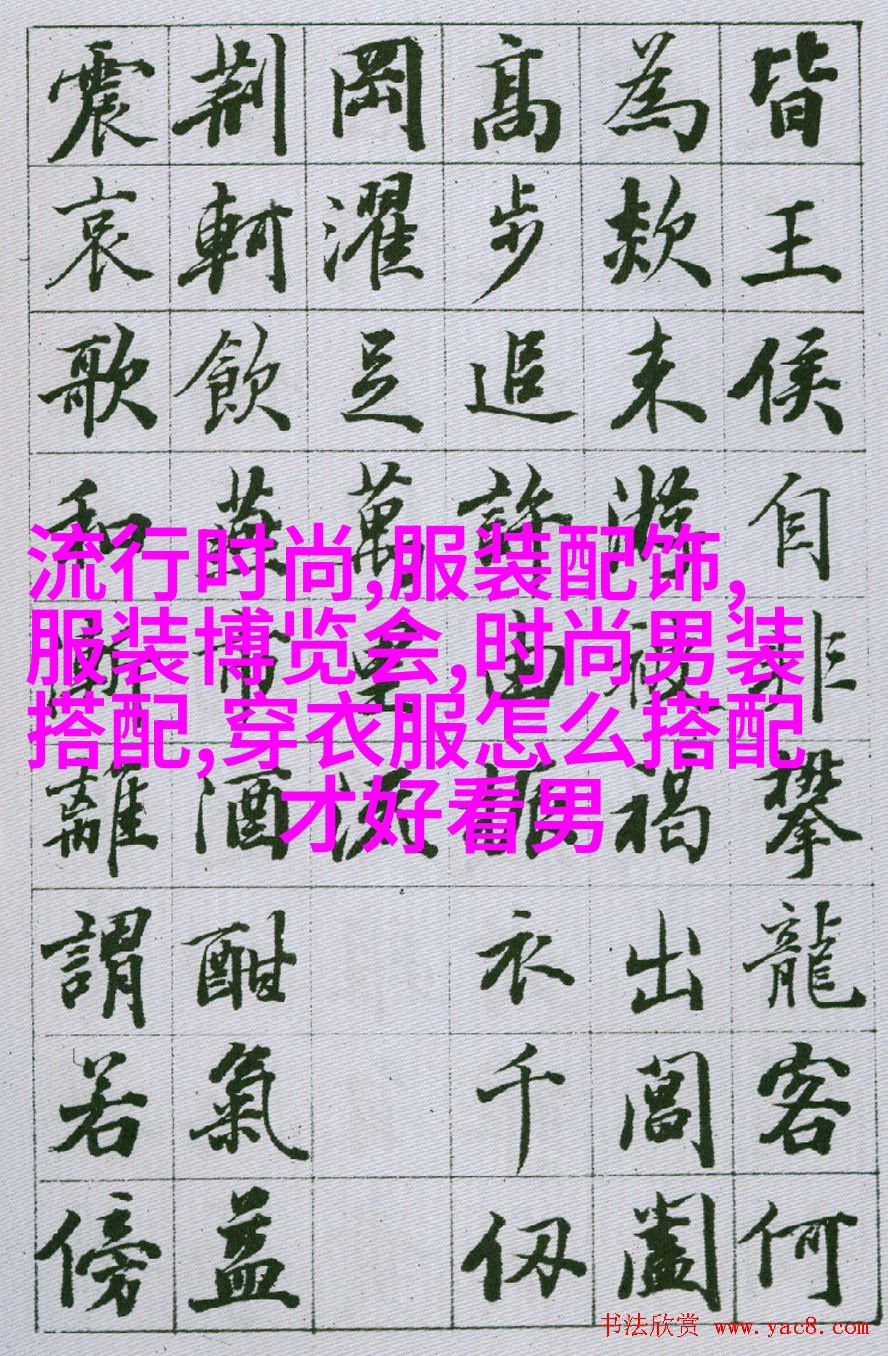 皆王侯自非攀龍客何
為欻来游被褐出閶闔
高步追許由振衣千仞
岡濯足萬里流
荆軻飲燕市酒酣氣益
震哀歌和漸離謂若傍
流行时尚,服装配饰,
服装博览会,时尚男装
搭配,穿衣服怎么搭配
才好看男
书法欣赏 www.yac8.com